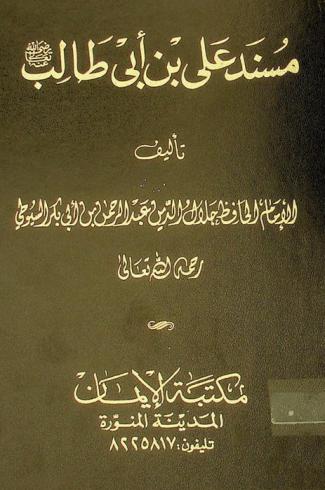 مُسْنَد عَلى بْن أَبى طَالِبْ رضي الله تعالى عنه
تأليف
الإمام الحافظ جلال الدين عبد الرحمن بن أبي بكر السيوطي
رحمه الله تعالى
مكتبة الإيمان
المدينة المنورة
تليفون: ٨٢٢٥٨١٧